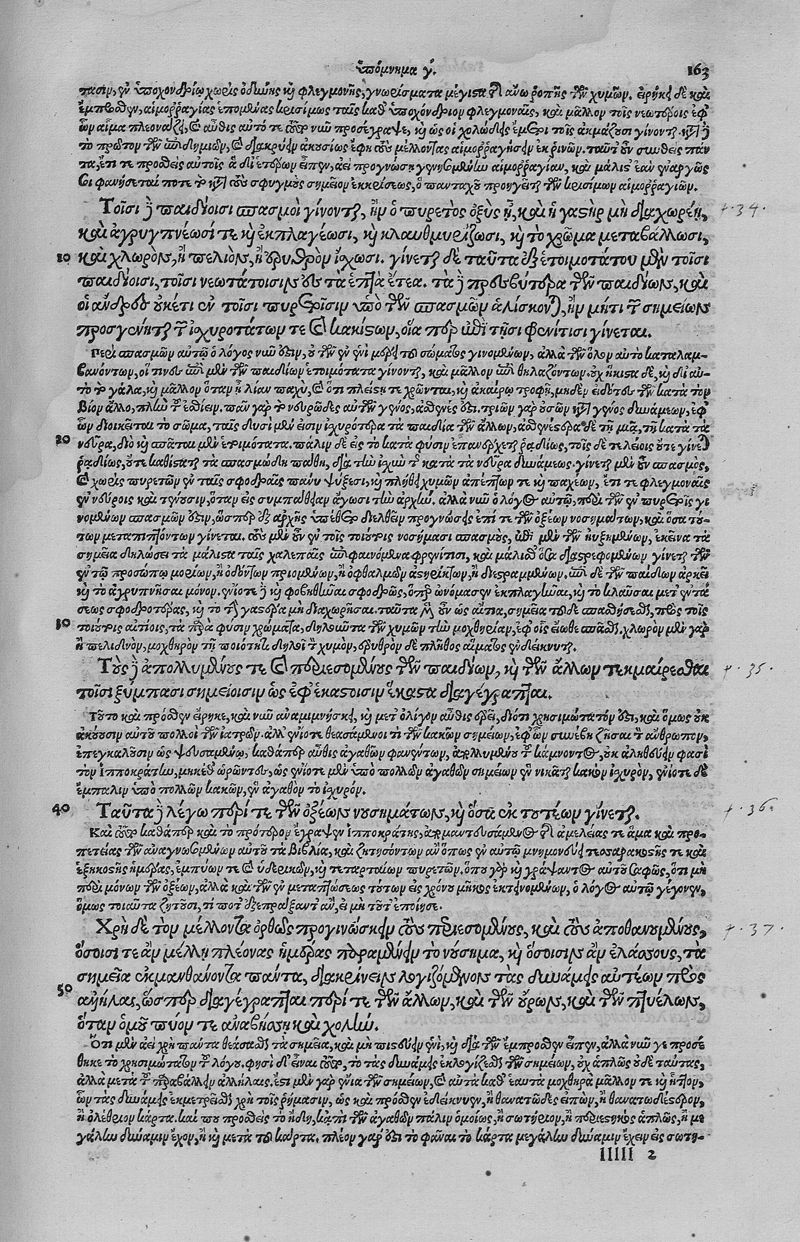 ὑπόμνημα γ΄. 163
τασιν, ἐν ὑποχονδρίῳ χωρὶς ὀδύνης καὶ φλεγμονῆς, γνωρίσματα μέγιστα τῆς ἄνω ῥοπῆς τῶν χυμῶν. εἴρηκε δὲ καὶ
ἔμπροσθεν, αἱμορραγίας ἑπομένας κρισίμως ταῖς καθ' ὑποχόνδριον φλεγμοναῖς, καὶ μᾶλλον τοῖς νεωτέροις ἐφ'
ὧν αἷμα πλεονάζει, καὶ αὖθις αὐτό τε τοῦτο νῦν προσέγραψε, καὶ ὡς οἱ χολώδεις ἔμετοι τοῖς ἀκμάζουσι γίνονται. κατὰ δὲ
τὸ πρῶτον τῶν ἐπιδημιῶν, καὶ δακρύειν ἀκουσίως ἔφη τοὺς μέλλοντας αἱμορραγήσειν ἐκ ῥινῶν. ταῦτ' οὖν συνθεὶς πάν
τα, ἔτι τε προσθεὶς αὐτοῖς ἃ δι' ἑτέρων εἶπεν, ἀεὶ προγνώσῃ γενησομένην αἱμορραγίαν, καὶ μάλιστ' ἐὰν ἐναργῶς
σοι φανήσεταί ποτε τὸ κατὰ τοὺς σφυγμοὺς σημεῖον ἐκκρίσεως, ὃ πανταχοῦ προηγεῖται τῶν κρισίμων αἱμορραγιῶν.
Τοῖσι δὲ παιδίοισι σπασμοὶ γίνονται, ἢν ὁ πυρετὸς ὀξὺς ᾖ, καὶ ἡ γαστὴρ μὴ διαχωρέῃ, + 34.
καὶ ἀγρυπνέωσί τε καὶ ἐκπλαγέωσι, καὶ κλαυθμυρίζωσι, καὶ τὸ χρῶμα μεταβάλλωσι,
10 καὶ χλωρὸν, ἢ πελιὸν, ἢ ἐρυθρὸν ἴσχωσι. γίνεται δὲ ταῦτα ἐξ ἑτοιμοτάτου μὲν τοῖσι
παιδίοισι, τοῖσι νεωτάτοισιν ἐς τὰ ἑπτὰ ἔτεα. τὰ δὲ πρεσβύτερα τῶν παιδίων, καὶ
οἱ ἄνδρες οὐκέτι ἐν τοῖσι πυρετοῖσιν ὑπὸ τῶν σπασμῶν ἁλίσκονται, ἢν μήτι τῶν σημείων
προσγένηται τῶν ἰσχυροτάτων τε καὶ κακίστων, οἷά περ ἐπὶ τῇσι φρενίτισι γίνεται.
Περὶ σπασμῶν αὐτῷ ὁ λόγος νῦν ἐστιν, οὐ τῶν ἐν ἑνὶ μορίῳ τοῦ σώματος γινομένων, ἀλλὰ τῶν ὅλον αὐτὸ καταλαμ-
βανόντων, οἵ τινες ἐπὶ μὲν τῶν παιδίων ἑτοιμότατα γίνονται, καὶ μᾶλλον ἐπὶ θηλαζόντων. οὐχ ἥκιστα δὲ, καὶ δι' αὐ-
τὸ τὸ γάλα, καὶ μᾶλλον ὅταν ᾖ λίαν παχὺ, καὶ ὅτι πλείστῃ τε χρῶνται, καὶ ἀκαίρῳ τροφῇ, μηδὲν εἰδότες τῶν κατὰ τὸν
βίον ἄλλο, πλὴν τοῦ ἐσθίειν. πᾶν γὰρ τὸ νευρῶδες αὐτῶν γένος, ἀσθενές ἐστι. τριῶν γὰρ οὐσῶν κατὰ γένος δυνάμεων, ἐφ'
ὧν διοικεῖται τὸ σῶμα, ταῖς δυσὶ μέν εἰσιν ἰσχυρότερα τὰ παιδία τῶν ἄλλων, ἀσθενέστερα δὲ τῇ μιᾷ, τῇ κατὰ τὰ
20 νεῦρα, διὸ καὶ σπᾶται μὲν ἑτοιμότατα. πάλιν δὲ εἰς τὸ κατὰ φύσιν ἐπανέρχεται ῥᾳδίως, τοῖς δὲ τελείοις οὔτε γίνεται
ῥᾳδίως, οὔτε καθίσταται τὰ σπασμώδη πάθη, διὰ τὴν ἰσχὺν τῆς κατὰ τὰ νεῦρα δυνάμεως. γίνεται μὲν οὖν σπασμὸς,
καὶ χωρὶς πυρετῶν ἐν ταῖς σφοδραῖς πάνυ ψύξεσι, καὶ πλήθει χυμῶν ἀπέπτων τε καὶ παχέων, ἔτι τε φλεγμοναῖς
ἐν νεύροις καὶ τένουσιν, ὅταν εἰς συμπάθειαν ἄγωσι τὴν ἀρχήν. ἀλλὰ νῦν ὁ λόγος αὐτῷ, περὶ τῶν ἐν πυρετοῖς γι
νομένων σπασμῶν ἐστιν, ὥσπερ ἐξ ἀρχῆς ὑπέθετο διελθεῖν προγνώσεις ἐπί τε τῶν ὀξέων νοσημάτων, καὶ ὅσα τού-
των μεταπιπτόντων γίνεται. τοὺς μὲν οὖν ἐν τοῖς τοιούτοις νοσήμασι σπασμοὺς, ἐπὶ μὲν τῶν ηὐξημένων, ἐκεῖνα τὰ
σημεῖα δηλώσει τὰ μάλιστα ταῖς χαλεπαῖς ἐπιφαινόμενα φρενίτισι, καὶ μάλισθ' ὅσα διαστρεφομένων γίνεται τῶν
ἐν τῷ προσώπῳ μορίων, ἢ ὀδόντων πριομένων, ἢ ὀφθαλμῶν στηριζόντων, ἢ διεστραμμένων, ἐπὶ δὲ τῶν παιδίων ἀρκεῖ
καὶ τὸ ἀγρυπνῆσαι μόνον. ἐνίοτε δὲ καὶ φοβηθῆναι σφοδρῶς, ὅπερ ὠνόμασεν ἐκπλαγῆναι, καὶ τὸ κλαῦσαι μετ' ἐντά
σεως σφοδροτέρας, καὶ τὸ τὴν γαστέρα μὴ διαχωρῆσαι. ταῦτα μὲν οὖν ὡς αἴτια, σημεῖα τοῦδε σπασθήσεσθαι, πρὸς τοῖς
30 τοιούτοις αἰτίοις, τὰ παρὰ φύσιν χρώματα, δηλοῦντα τῶν χυμῶν τὴν μοχθηρίαν, ἐφ' οἷς εἴωθε σπᾶσθαι. χλωρὸν μὲν γὰρ
ἢ πελιδνὸν, μοχθηρὸν τῇ ποιότητι δηλοῖ τὸν χυμὸν, ἐρυθρὸν δὲ πλῆθος αἵματος ἐνδείκνυται.
Τοὺς δὲ ἀπολλυμένους τε καὶ περιεσομένους τῶν παιδίων, καὶ τῶν ἄλλων τεκμαίρεσθαι + 35.
τοῖσι ξύμπασι σημείοισιν ὡς ἐφ' ἑκάστοισιν ἕκαστα διαγέγραπται.
Τοῦτο καὶ πρόσθεν εἴρηκε, καὶ νῦν ἀναμιμνήσκει, καὶ μετ' ὀλίγον αὖθις ἐρεῖ, διότι χρησιμώτατόν ἐστι, καὶ ὅμως οὐκ
ἀκούουσιν αὐτοῦ πολλοὶ τῶν ἰατρῶν. ἀλλ' ἐνίοτε θεασάμενοί τι τῶν κακῶν σημείων, ἐφ' ὧν συνέβη ζῆσαι τὸν ἄνθρωπον,
ἐπεγκαλοῦσιν ὡς ψευσαμένῳ, καθάπερ αὖθις ἀγαθῶν φανέντων, ἀπολλυμένου τοῦ κάμνοντος, οὐκ ἀληθεύειν φασὶ
τὸν Ἱπποκράτην, μηκέθ' ὁρῶντες, ὡς ἐνίοτε μὲν ὑπὸ πολλῶν ἀγαθῶν σημείων ἓν νικᾶται κακὸν ἰσχυρὸν, ἐνίοτε δὲ
ἔμπαλιν ὑπὸ πολλῶν κακῶν, ἓν ἀγαθὸν τὸ ἰσχυρόν.
40 Ταῦτα δὲ λέγω περί τε τῶν ὀξέων νουσημάτων, καὶ ὅσα ἐκ τουτέων γίνεται. + 36.
Καὶ τοῦτο καθάπερ καὶ τὸ πρότερον ἔγραψεν Ἱπποκράτης, ἀπομαντευσάμενος τῆς ἀμελείας τε ἅμα καὶ προ-
πετείας τῶν ἀναγνωσομένων αὐτοῦ τὰ βιβλία, καὶ ζητησόντων ἂν ὅπως ἐν αὐτῷ μνημονεύει τεσσαρακοστῆς τε καὶ
ἑξηκοστῆς ἡμέρας, ἐμπύων τε καὶ ὑδερικῶν, καὶ τεταρταίων πυρετῶν, ὅπου γὰρ καὶ γράψαντος αὐτοῦ σαφῶς, ὅτι μὴ
περὶ μόνων τῶν ὀξέων, ἀλλὰ καὶ τῶν ἐν μεταπτώσεως τούτων εἰς χρόνου μῆκος ἐκτεινομένων, ὁ λόγος αὐτῷ γέγονεν,
ὅμως τοιαῦτα ζητοῦσι, τί ποτ' ἐξέπραξαν ἂν, εἰ μὴ τοῦτ' ἐποίησε.
Χρὴ δὲ τὸν μέλλοντα ὀρθῶς προγινώσκειν τοὺς περιεσομένους, καὶ τοὺς ἀποθανουμένους, + 37.
ὅσοισί τε ἂν μέλλῃ πλέονας ἡμέρας παραμένειν τὸ νόσημα, καὶ ὅσοισιν ἂν ἐλάσσους, τὰ
σημεῖα ἐκμανθάνοντα πάντα, διακρίνειν λογιζόμενον τὰς δυνάμεις αὐτέων πρὸς
50 ἀλλήλας, ὥσπερ διαγέγραπται περί τε τῶν ἄλλων, καὶ τῶν οὔρων, καὶ τῶν πτυέλων,
ὅταν ὁμοῦ πύον τε ἀναβήσσῃ καὶ χολήν.
Ὅτι μὲν ἀεὶ χρὴ πάντα θεᾶσθαι τὰ σημεῖα, καὶ μὴ πιστεύειν ἑνὶ, καὶ διὰ τῶν ἔμπροσθεν εἶπεν, ἀλλὰ νῦν γε προσέ
θηκε τὸ χρησιμώτατον τοῦ λόγου, φησὶ δ' εἶναι τοῦτο, τὸ τὰς δυνάμεις ἐκλογίζεσθαι τῶν σημείων, οὐχ ἁπλῶς οὐδὲ ταύτας,
ἀλλὰ μετὰ τοῦ παραβάλλειν ἀλλήλαις. ἔστι μὲν γὰρ ἔνια τῶν σημείων, καὶ αὐτὰ καθ' ἑαυτὰ μοχθηρὰ μᾶλλόν τε καὶ ἧττον,
ὧν τὰς δυνάμεις ἐκμετρεῖσθαι χρὴ τοῖς ῥήμασιν, ὡς καὶ πρόσθεν ἐδείκνυεν, ἢ θανατῶδες εἰπὼν, ἢ θανατωδέστερον,
ἢ ὀλέθριον κάρτα. καί που προσθεὶς τὸ ἤδη, κἀπὶ τῶν ἀγαθῶν πάλιν ὁμοίως, ἢ σωτήριον, ἢ περιεστικὸς ἁπλῶς, ἢ με
γάλην δύναμιν ἔχον, ἢ καὶ μετὰ τοῦ κάρτα. πλέον γάρ ἐστι τὸ φᾶναι τὸ κάρτα μεγάλην δύναμιν ἔχειν εἰς σωτη-
IIIII 2